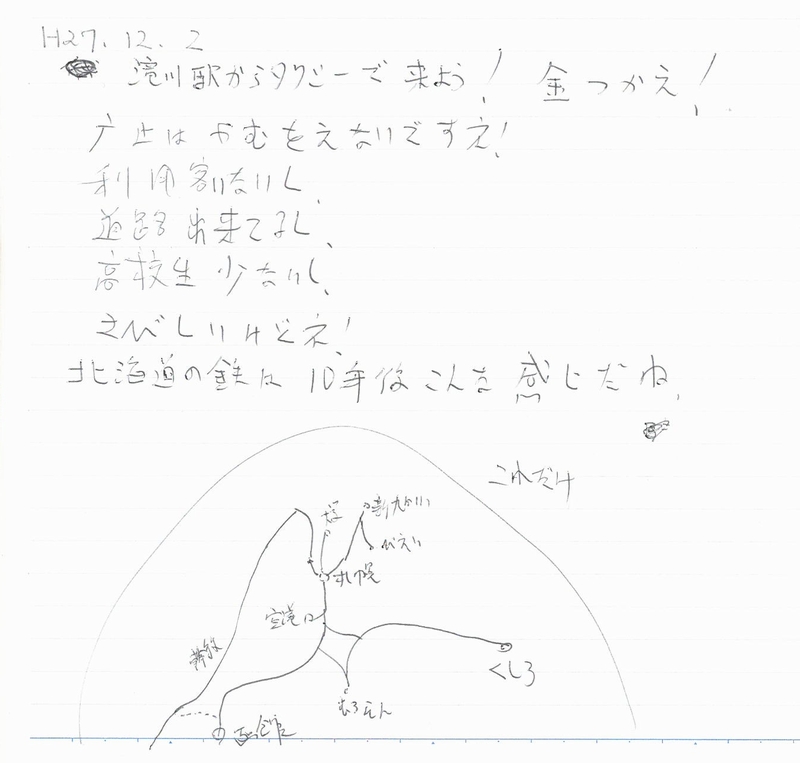 H27.12.2
滝川駅からタクシーで来よう! 金つかえ!
廃止はやむをえないですネ!
利用客いないし、
道路出来てるし、
高校生少ないし、
さびしいけどネ!
北海道の鉄は10年後こんな感じだね。
これだけ
びえい
札幌
空港
新幹線
くしろ
むろらん
函館